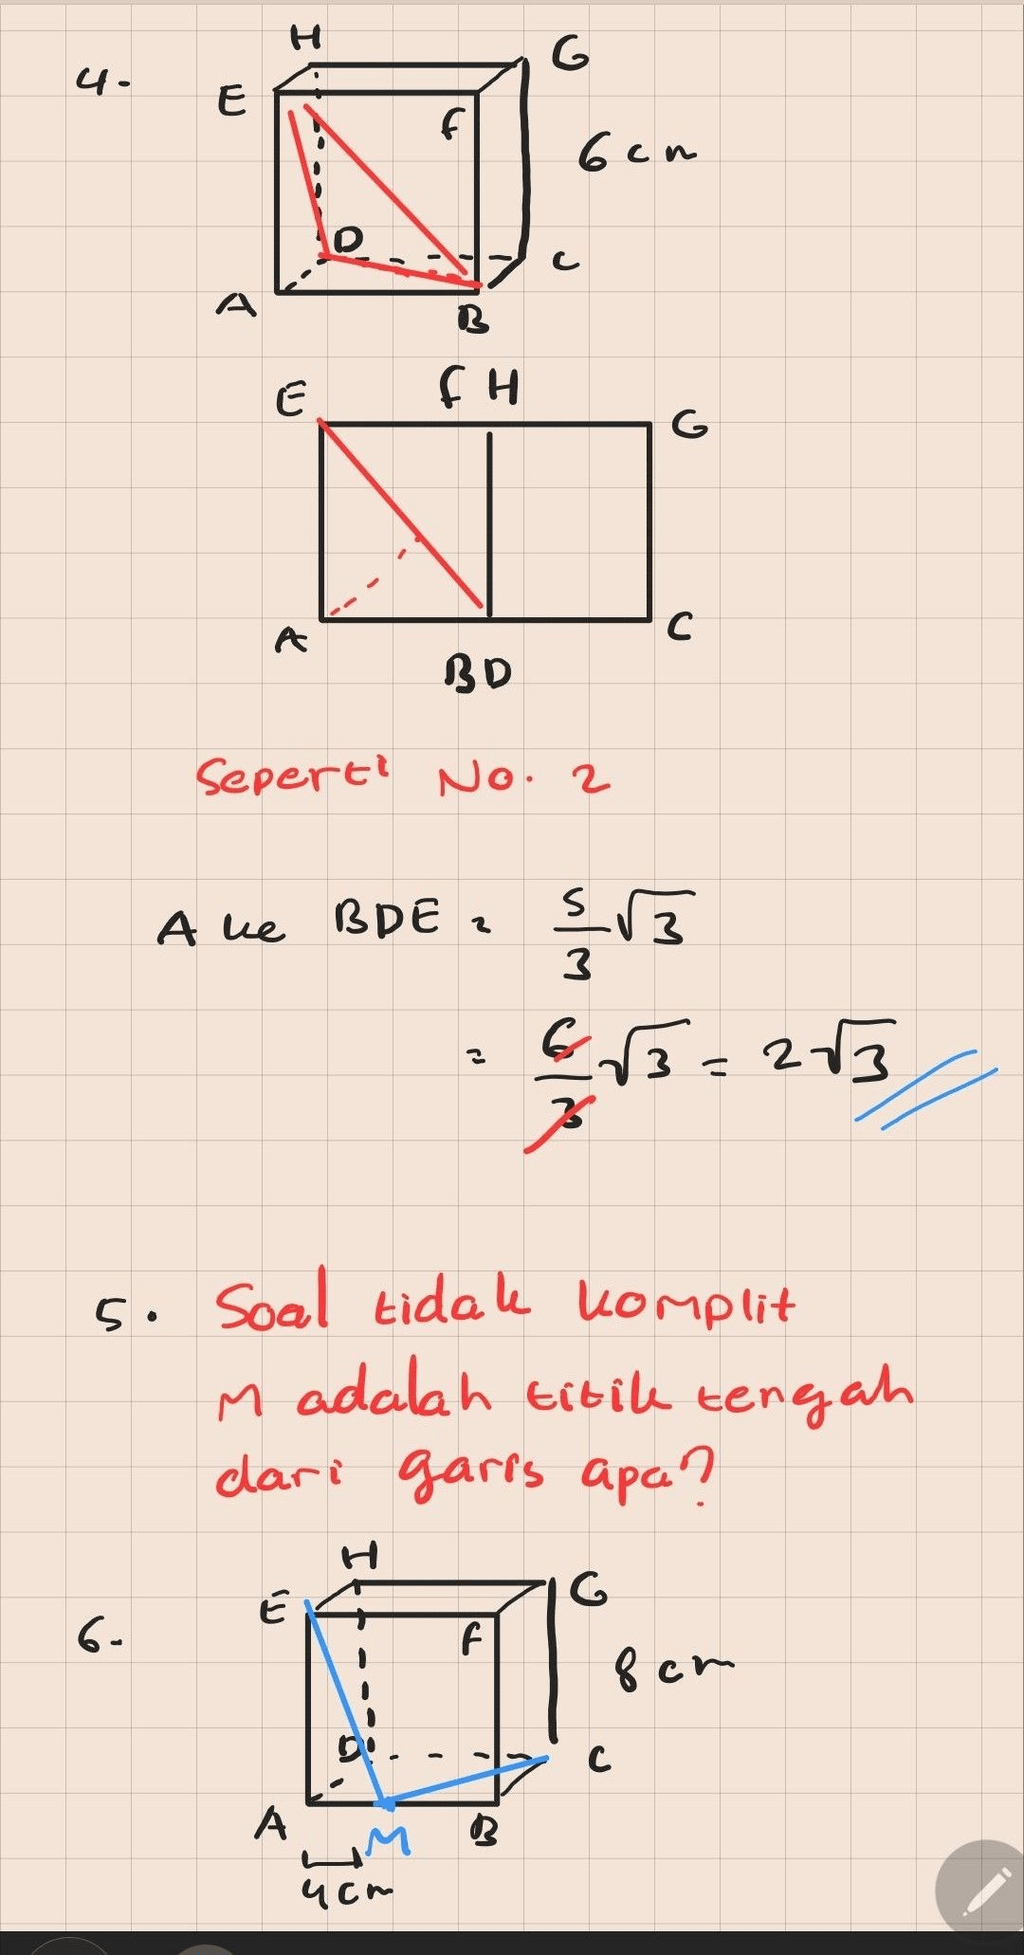 4.
H
G
E
F
6 cm
D
C
A
B
E
F H
G
A
C
B D
Seperti No. 2
A ke BDE = s/3 √3
= 6/3 √3 = 2√3
5. Soal tidak komplit
M adalah titik tengah
dari garis apa?
H
E
G
6.
F
8 cm
D
C
A
M
B
4 cm